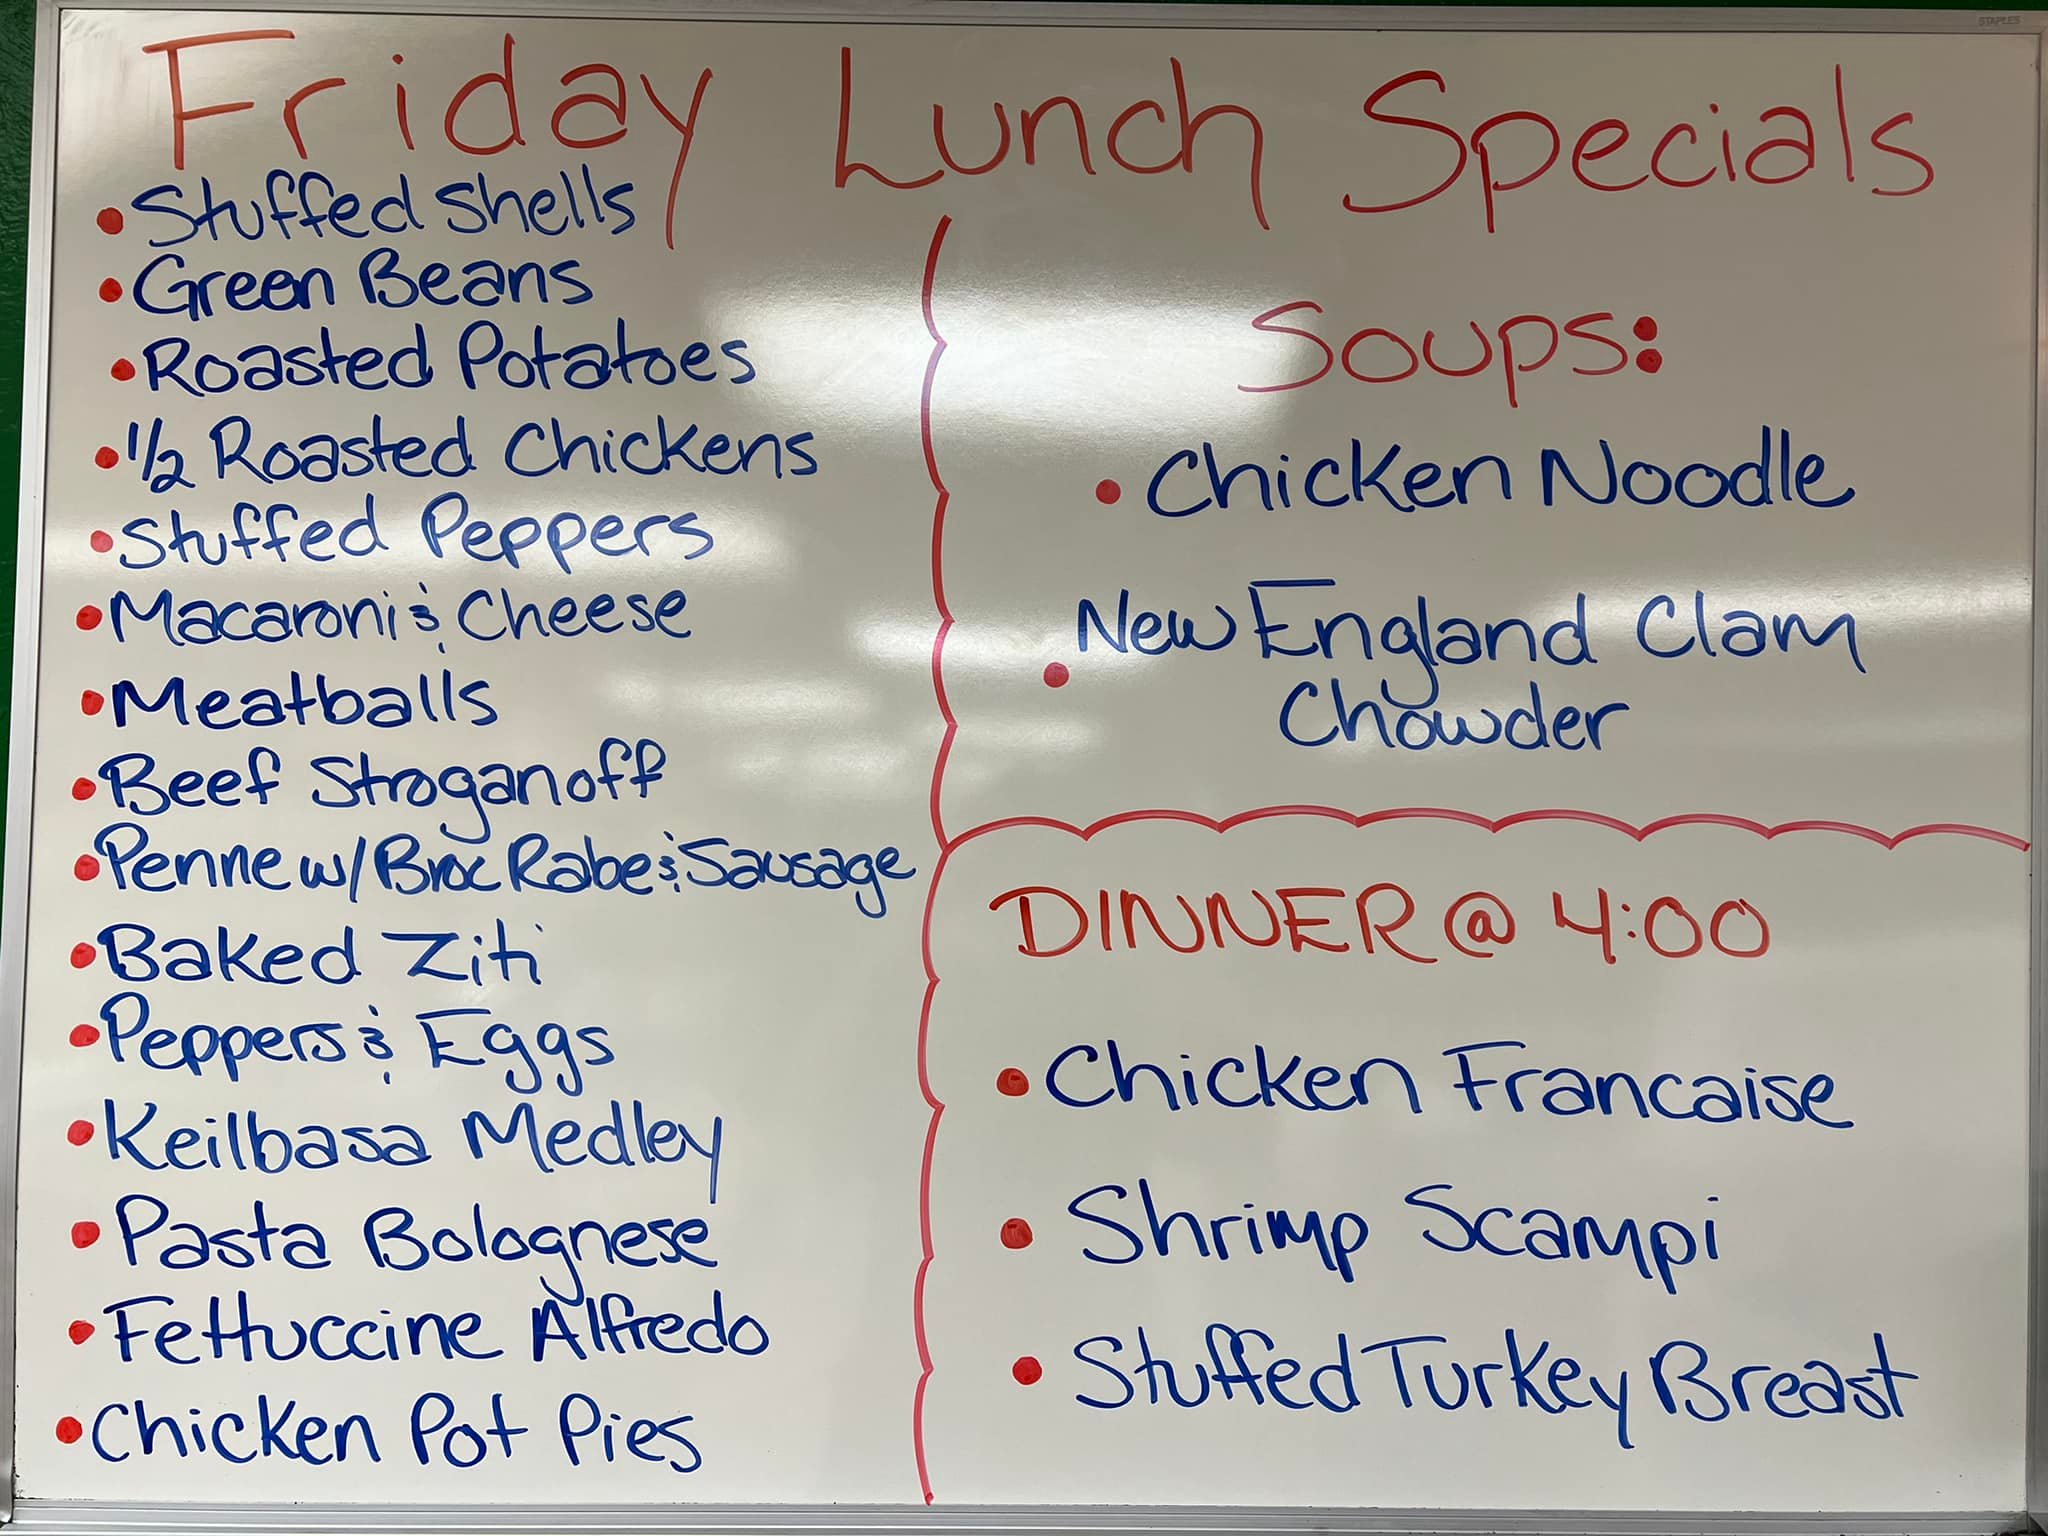 STAPLES
Friday Lunch Specials
• Stuffed Shells
• Green Beans
• Roasted Potatoes
• 1/2 Roasted Chickens
• Stuffed Peppers
• Macaroni & Cheese
• Meatballs
• Beef Stroganoff
• Penne w/ Broc Rabe & Sausage
• Baked Ziti
• Peppers & Eggs
• Keilbasa Medley
• Pasta Bolognese
• Fettuccine Alfredo
• Chicken Pot Pies
Soups:
• Chicken Noodle
• New England Clam
Chowder
DINNER @ 4:00
• Chicken Francaise
• Shrimp Scampi
• Stuffed Turkey Breast